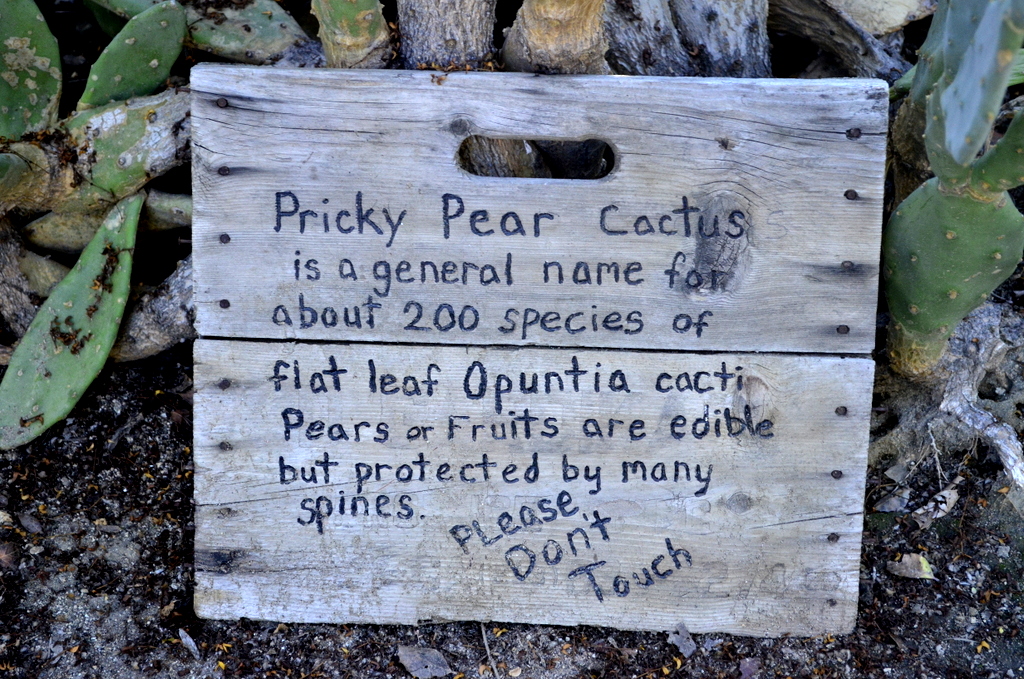 Pricky Pear Cactus
is a general name for
about 200 species of
flat leaf Opuntia cacti
Pears or Fruits are edible
but protected by many
spines.
PLease
Don't
Touch